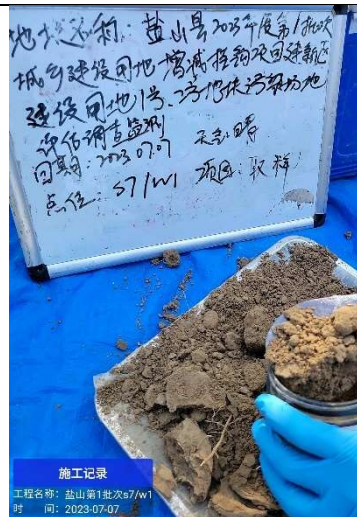 地块名称：盐山县2023年度第1批次
城乡建设用地增减挂钩项目建新区
建设用地1号、2号地块污染场地
评估调查监测
日期：2023.07.07 天气：晴
点位：S7/W1 项目：取样
施工记录
工程名称：盐山第1批次s7/w1
时 间：2023-07-07